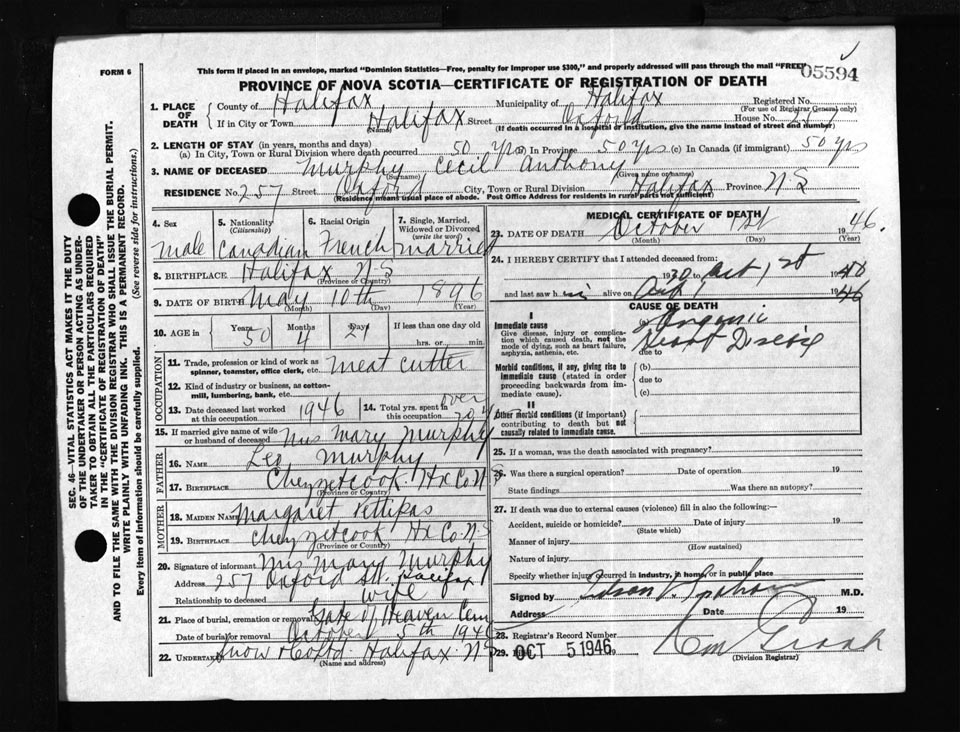 FORM 6
This form if placed in an envelope, marked "Dominion Statistics—Free, penalty for improper use $300," and properly addressed will pass through the mail "FREE"
05594
PROVINCE OF NOVA SCOTIA—CERTIFICATE OF REGISTRATION OF DEATH
1. PLACE OF DEATH
County of Halifax Municipality of Halifax Registered No.
(For use of Registrar General only)
If in City or Town Halifax Street Oxford House No. 257
(Name) (If death occurred in a hospital or institution, give the name instead of street and number)
2. LENGTH OF STAY (in years, months and days)
(a) In City, Town or Rural Division where death occurred 50 yrs (b) In Province 50 yrs (c) In Canada (if immigrant) 50 yrs
3. NAME OF DECEASED Murphy Cecil Anthony
(Surname) (Given name or names)
RESIDENCE No. 257 Street Oxford City, Town or Rural Division Halifax Province N-S
(Residence means usual place of abode. Post Office Address for residents in rural parts not sufficient)
4. Sex male
5. Nationality (Citizenship) Canadian
6. Racial Origin French
7. Single, Married, Widowed or Divorced (write the word) married
8. BIRTHPLACE Halifax N-S
(Province or Country)
9. DATE OF BIRTH May 10th 1896
(Month) (Day) (Year)
10. AGE in Years 50 Months 4 Days 21 If less than one day old
hrs. or min.
OCCUPATION
11. Trade, profession or kind of work as spinner, teamster, office clerk, etc. meat cutter
12. Kind of industry or business, as cotton-mill, lumbering, bank, etc.
13. Date deceased last worked at this occupation 1946
14. Total yrs. spent in this occupation over 20 y
15. If married give name of wife or husband of deceased Mrs Mary Murphy
FATHER
16. NAME Leo Murphy
17. BIRTHPLACE Chezzetcook Hx Co. N-S
(Province or Country)
MOTHER
18. MAIDEN NAME Margaret Pettipas
19. BIRTHPLACE Chezzetcook Hx Co. N-S
(Province or Country)
20. Signature of informant Mrs Mary Murphy
Address 257 Oxford St. Halifax
Relationship to deceased wife
21. Place of burial, cremation or removal Gate of Heaven Cem
Date of burial or removal October 5th 1946
22. Undertaker Snow & Co Ltd. Halifax N-S
(Name and address)
MEDICAL CERTIFICATE OF DEATH
23. DATE OF DEATH October 1st 1946.
(Month) (Day) (Year)
24. I HEREBY CERTIFY that I attended deceased from:
1930 to Oct 1st 1946
and last saw him alive on 1946
CAUSE OF DEATH
I
Immediate cause
Give disease, injury or complication which caused death, not the mode of dying, such as heart failure, asphyxia, asthenia, etc.
Organic
Heart Disease
due to
Morbid conditions, if any, giving rise to immediate cause (stated in order proceeding backwards from immediate cause).
(b)
due to
(c)
II
Other morbid conditions (if important) contributing to death but not causally related to immediate cause.
25. If a woman, was the death associated with pregnancy?
26. Was there a surgical operation? Date of operation 19
State findings Was there an autopsy?
27. If death was due to external causes (violence) fill in also the following:—
Accident, suicide or homicide? Date of injury 19
(State which)
Manner of injury
(How sustained)
Nature of injury
Specify whether injury occurred in industry, in home, or in public place
Signed by M.D.
Address Date 19
28. Registrar's Record Number
29. OCT 5 1946
(Division Registrar)
SEC. 46—VITAL STATISTICS ACT MAKES IT THE DUTY
OF THE UNDERTAKER OR PERSON ACTING AS UNDERTAKER TO OBTAIN ALL THE PARTICULARS REQUIRED
IN THE "CERTIFICATE OF REGISTRATION OF DEATH" AND
TO FILE THE SAME WITH THE DIVISION REGISTRAR WHO SHALL ISSUE THE BURIAL PERMIT.
WRITE PLAINLY WITH UNFADING INK. THIS IS A PERMANENT RECORD.
Every item of information should be carefully supplied. (See reverse side for instructions.)